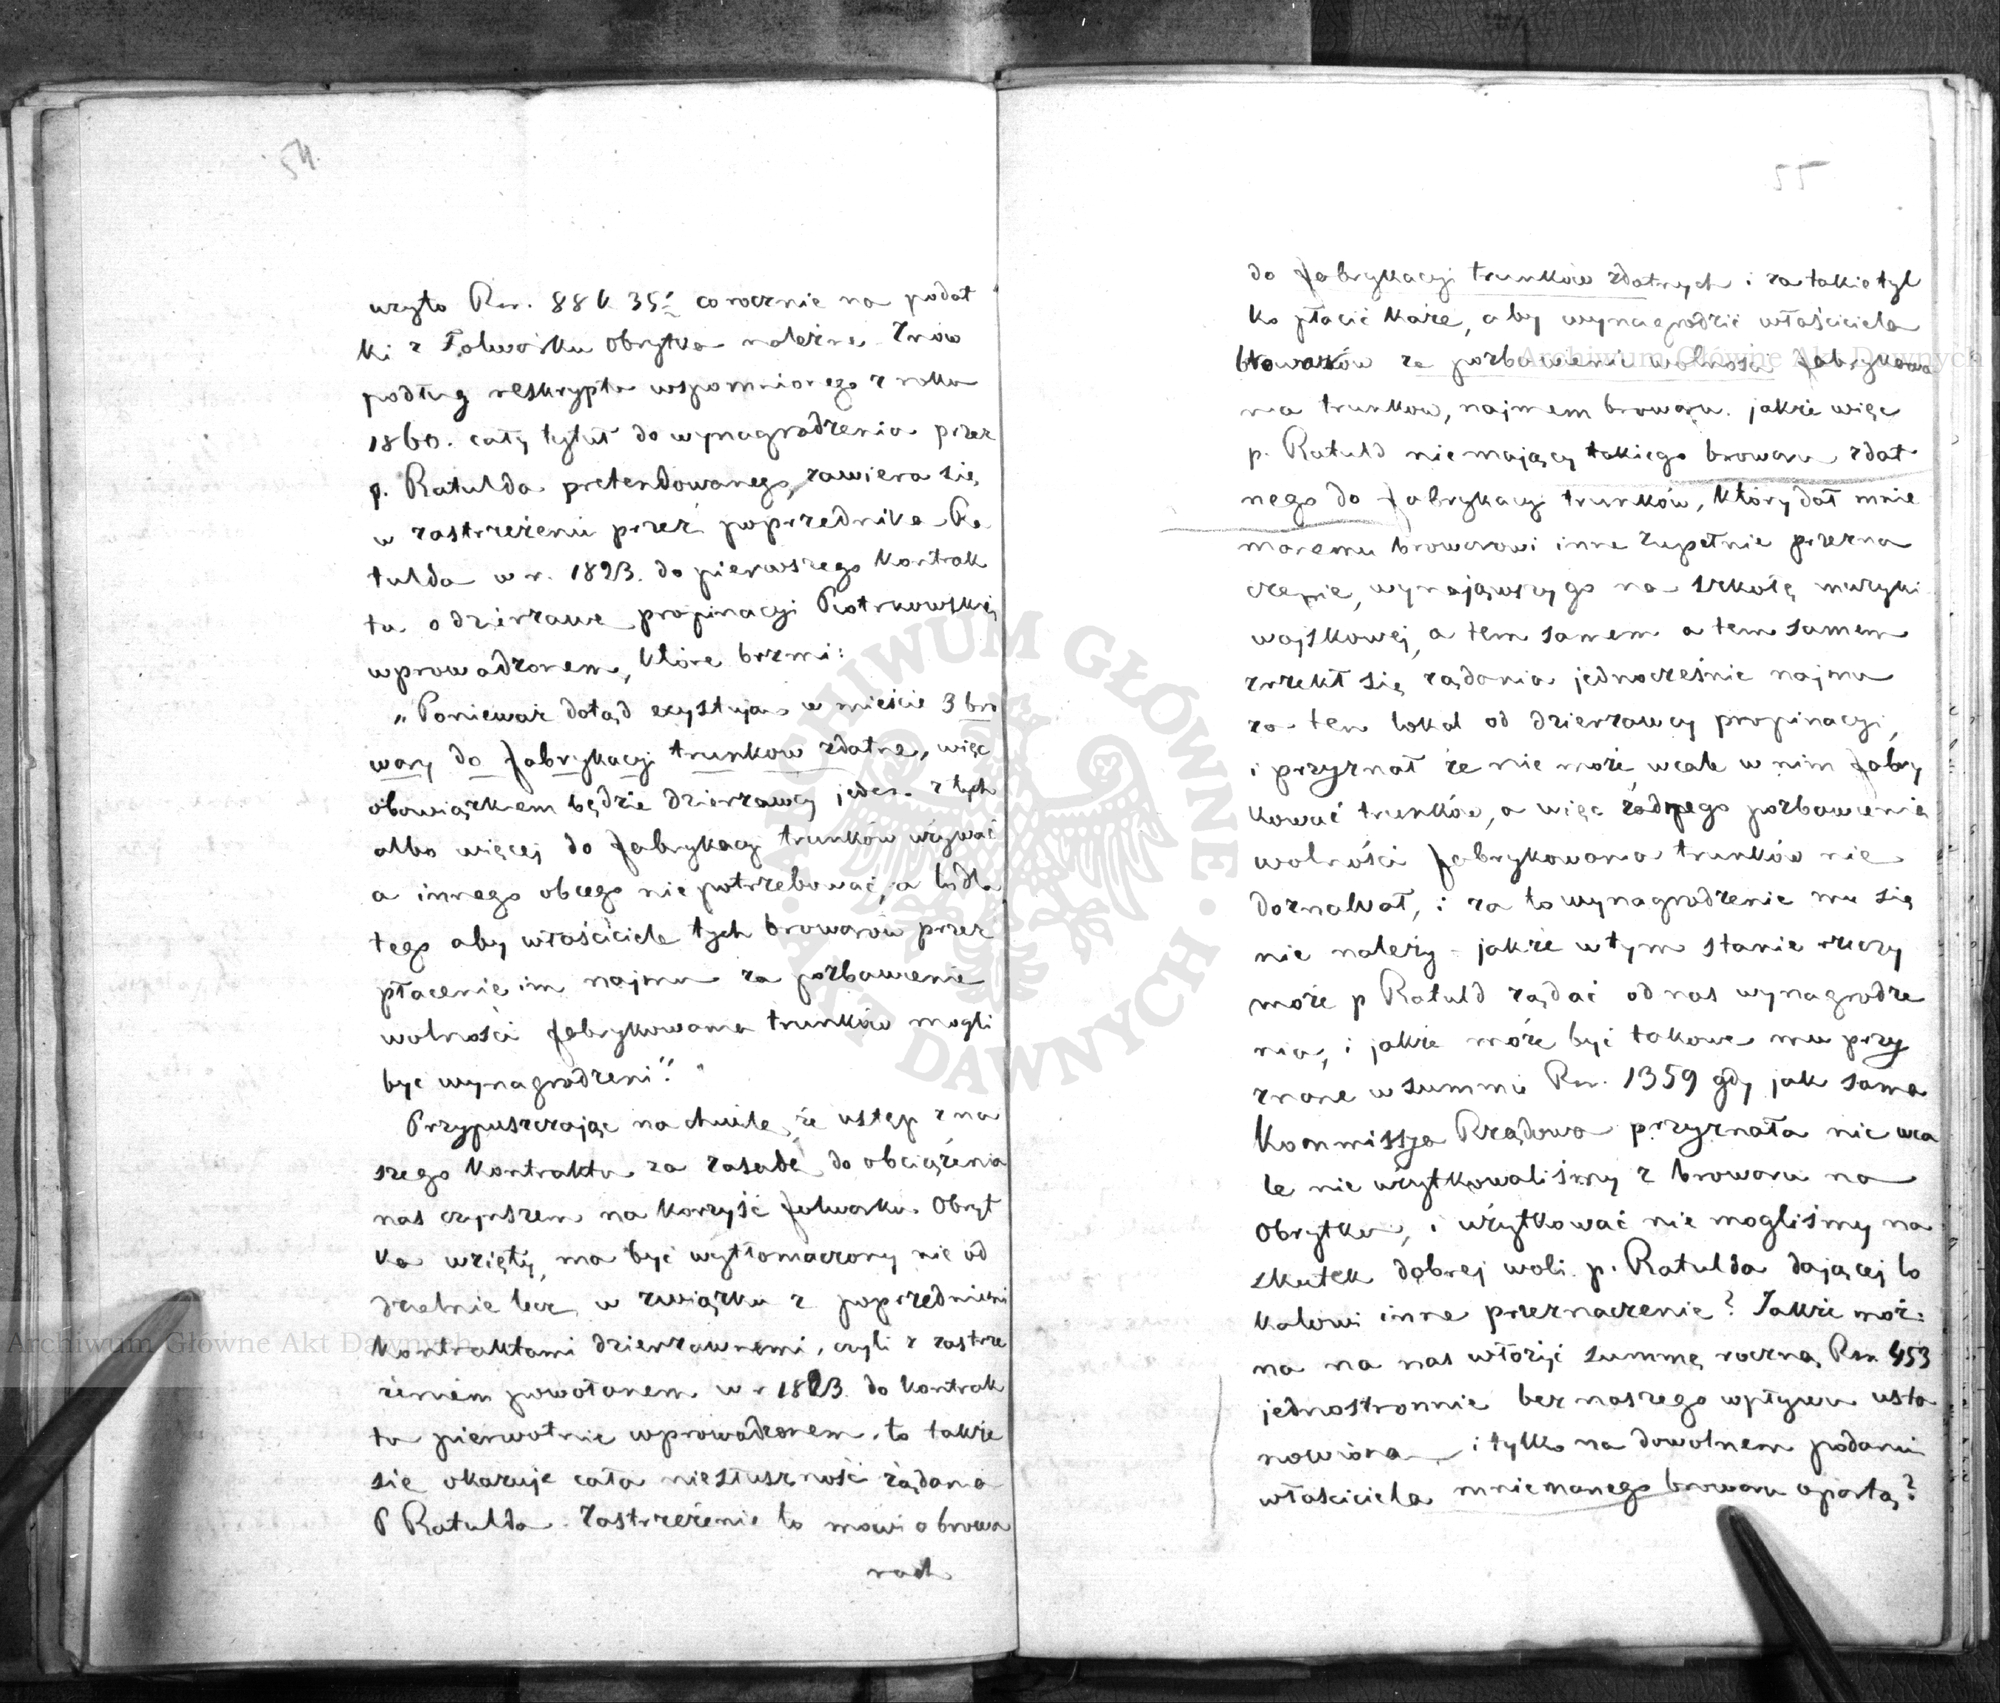 54.
użyto Rsr. 88 k. 35½ corocznie na podat
ki z Folwarku Obrytka należne. Znów
podług reskryptu wspomnionego z roku
1860. cały tytuł do wynagrodzenia przez
p. Ratulda pretendowanego, zawiera się
w zastrzeżeniu przez poprzednika Ra
tulda w r. 1823. do pierwszego kontrak
tu o dzierzawe propinacyi Piotrkowskiej
wprowadzonem, które brzmi:
"Ponieważ dotąd exystuja w mieście 3 bro
wary do fabrykacyi trunkow zdatne, więc
obowiązkiem będzie dzierzawcy jeden z tych
albo więcej do fabrykacyi trunków używać
a innego obcego niepotrzebować, a to dla
tego aby właściciele tych browarów przez
płacenie im najmu za pozbawienie
wolności fabrykowania trunków mogli
byc wynagrodzeni."
Przypuszczając na chwile, że ustęp z na
szego kontraktu za zasadę do obciążenia
nas czynszem na korzyść folwarku Obryt
ka wzięty, ma być wytłomaczony nie od
dzielnie lecz w związku z poprzedniemi
kontraktami dzierzawnemi, czyli z zastrze
żeniem powołanem w r 1823. do kontrak
tu pierwotnie wprowadzonem, to także
się okazuje cała niesłuszność żądania
P Ratulda. Zastrzeżenie to mowi o browa
rach
55
do fabrykacyi trunków zdatnych i za takie tyl
ko płacić każe, aby wynagrodzić właściciela
browarów za pozbawienie wolności fabrykowa
nia trunkow, najmem browaru. jakże więc
p. Ratuld nie mający takiego browaru zdat
nego do fabrykacyi trunków, który dał mnie
manemu browarowi inne zupełnie przezna
czenie, wynająwszy go na szkołę muzyki
wojskowej, a tem samem a tem samem
zrzekł się żądania jednocześnie najmu
za ten lokal od dzierzawcy propinacyi,
i przyznał że nie może wcale w nim fabry
kować trunków, a więc żadnego pozbawienia
wolności fabrykowania trunków nie
doznawał, i za to wynagrodzenie mu się
nie należy - jakże w tym stanie rzeczy
może p Ratuld żądać od nas wynagrodze
nia, i jakże może być takowe mu przy
znane w summie Rsr. 1359 gdy jak sama
Kommissya Rządowa przyznała nie wca
le nie użytkowaliśmy z browaru na
Obrytku, i użytkować nie mogliśmy na
skutek dobrej woli p. Ratulda dającej lo
kalowi inne przeznaczenie? Jakże moż:
na na nas włożyć summę roczną Rsr 453
jednostronnie bez naszego wpływu usta
nowioną i tylko na dowolnem podaniu
właściciela mniemanego browaru opartą?
Archiwum Główne Akt Dawnych
Archiwum Główne Akt Dawnych
ARCHIWUM GŁÓWNE · AKT DAWNYCH ·